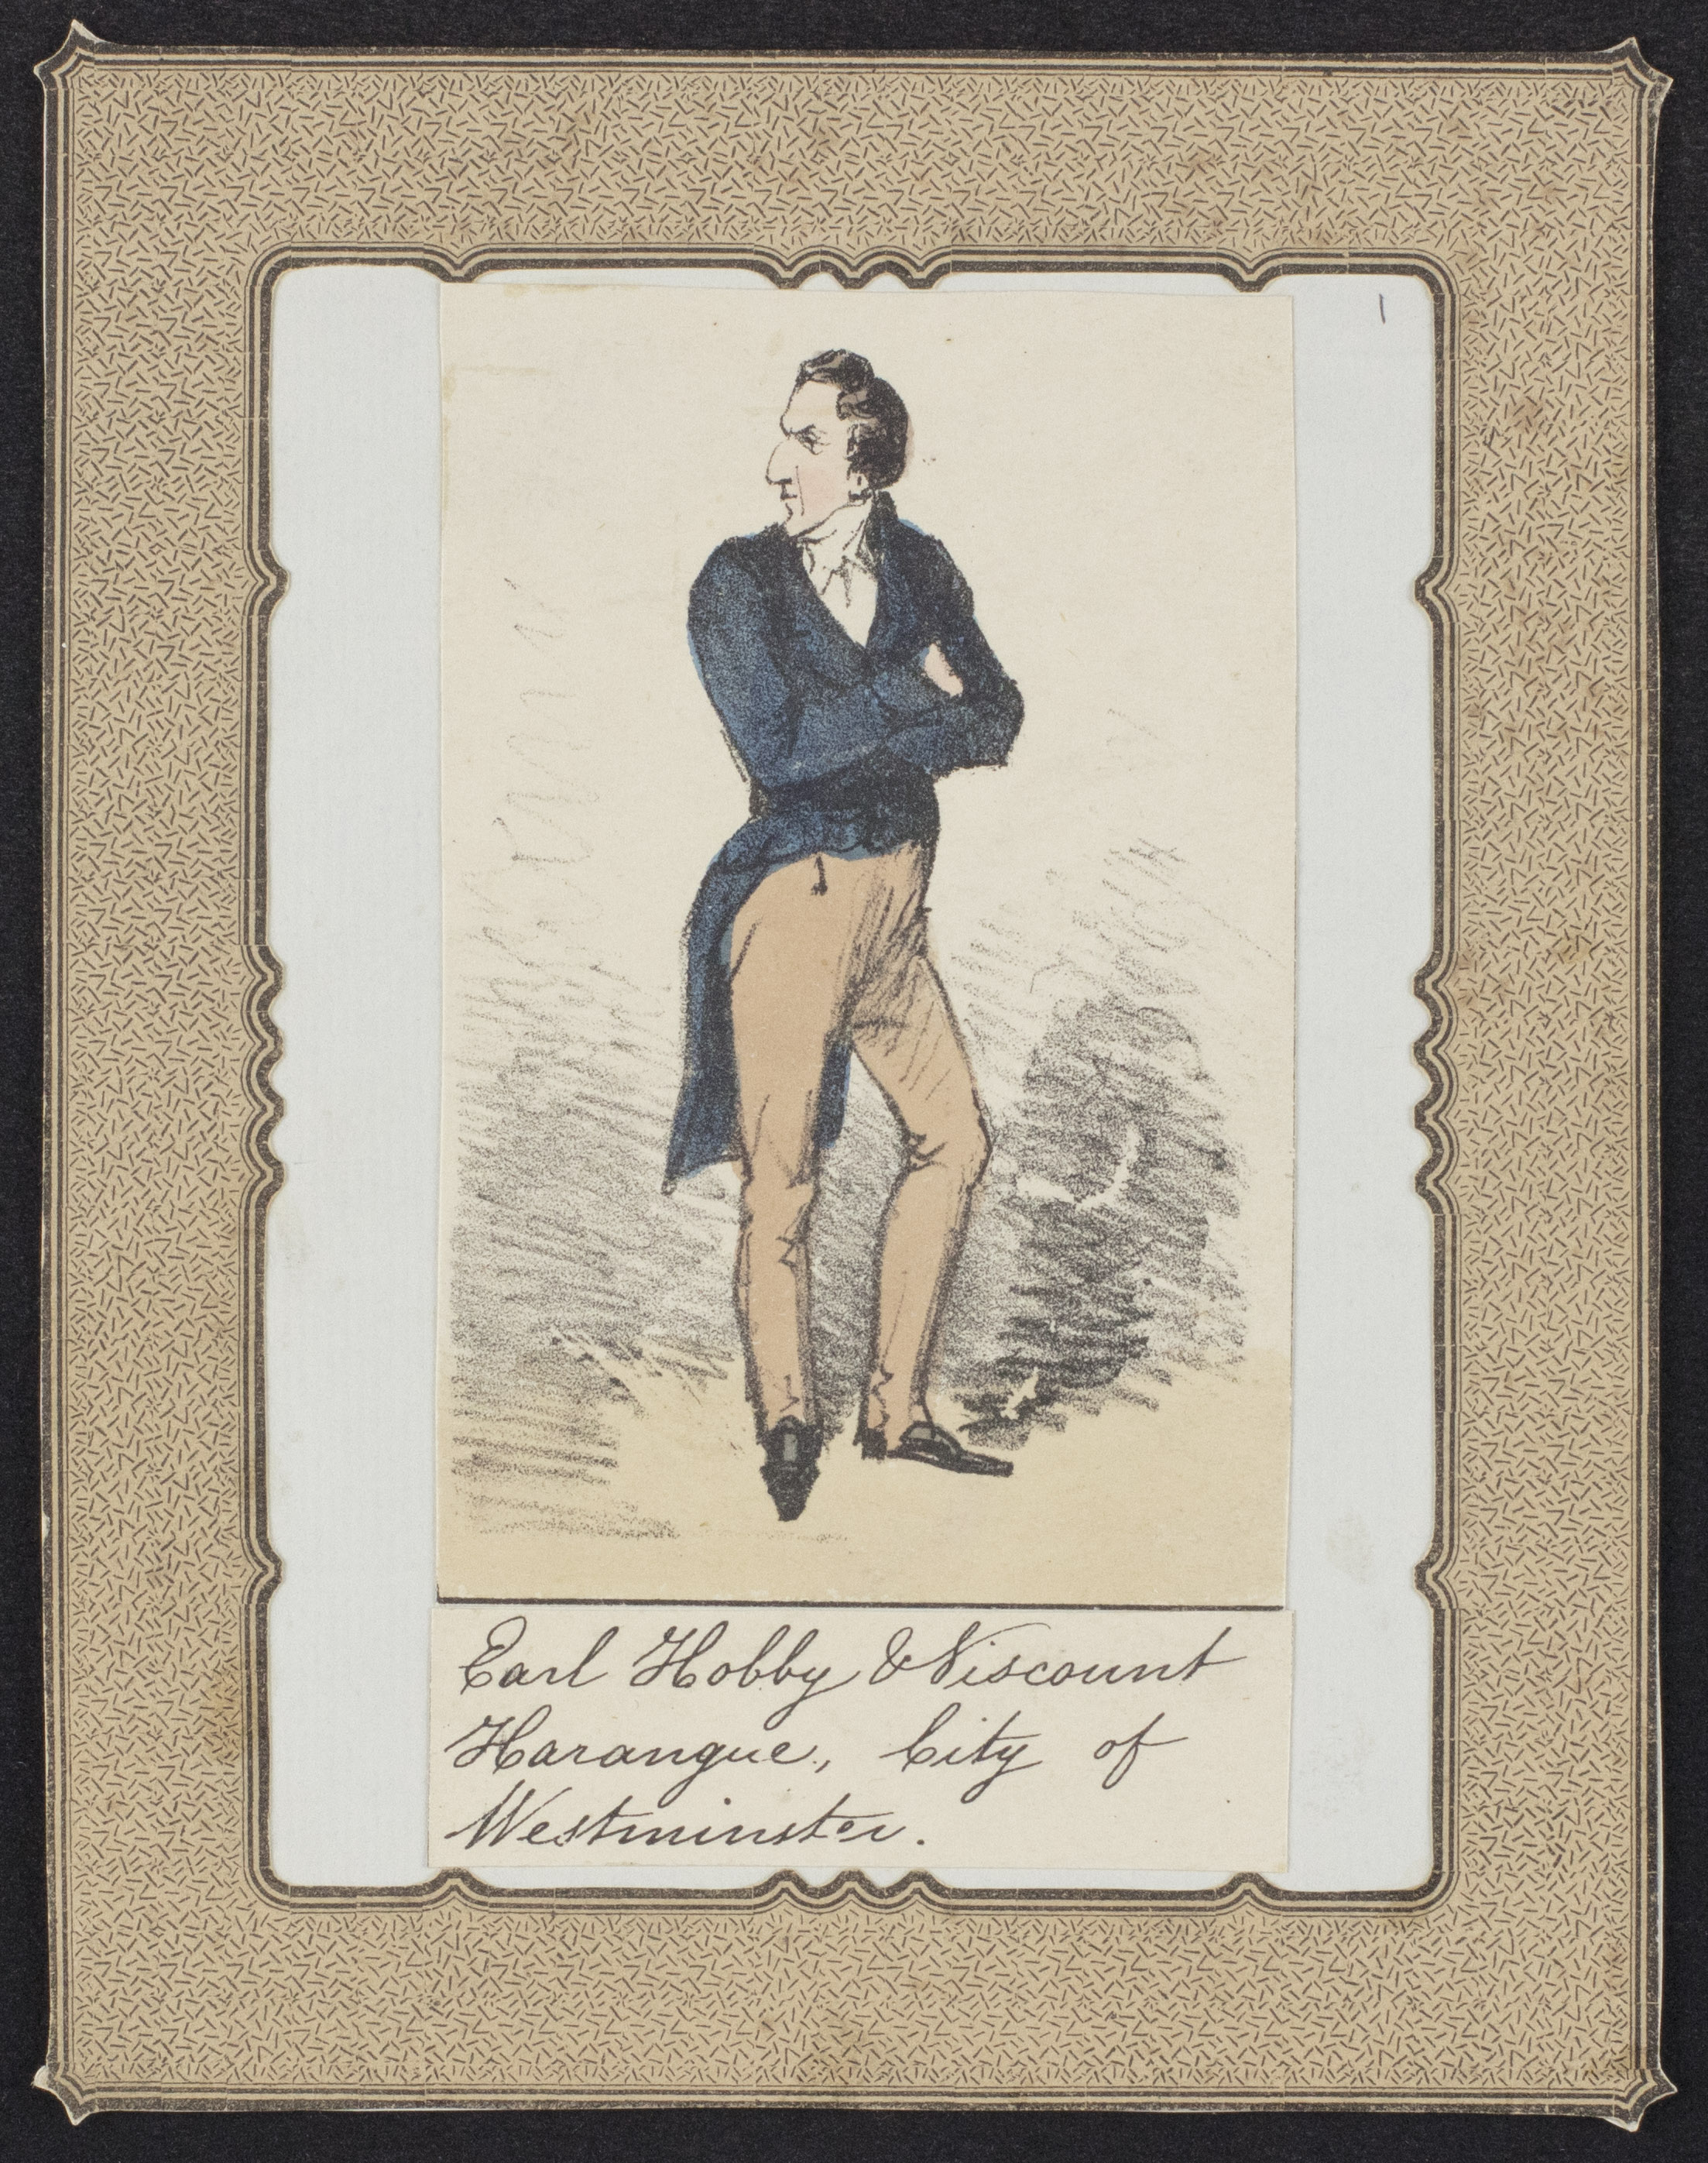 1
Earl Hobby & Viscount
Harangue, City of
Westminster.